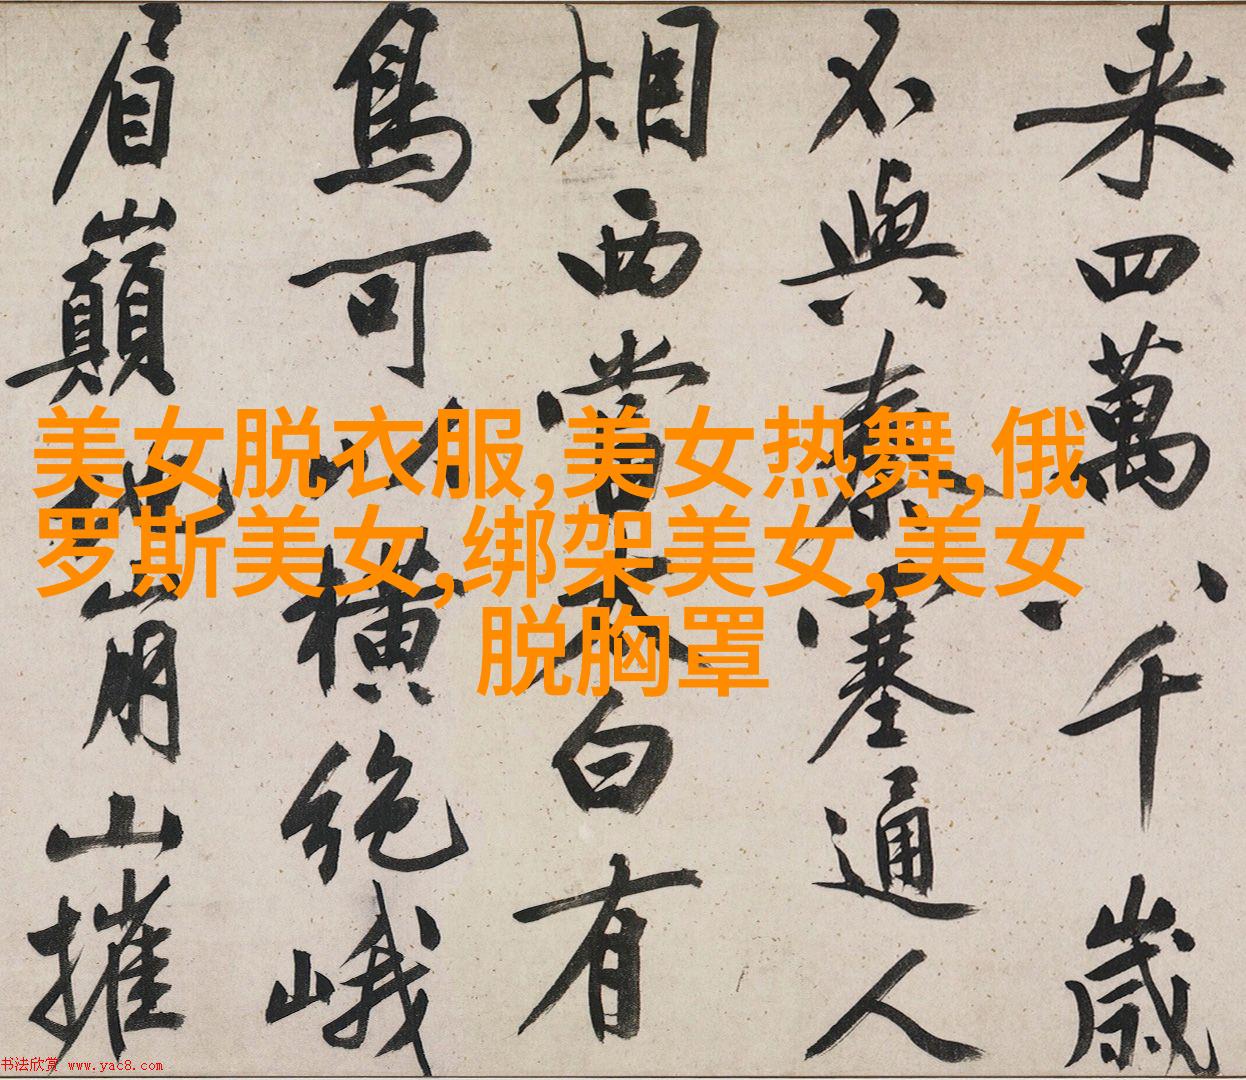 来四萬八千歲
不與秦塞通人
烟西當太白有
鳥可以橫絶峨
眉巔地崩山摧
美女脱衣服,美女热舞,俄
罗斯美女,绑架美女,美女
脱胸罩
书法欣赏 www.yac8.com